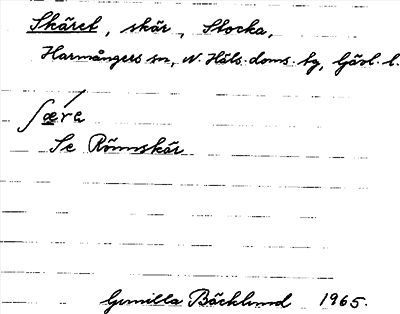 Skäret, skär, Stocka,
Harmångers sn, N. Häls. doms. tg, Gävl. l.
ʃǽra
Se Rönnskär
Gunilla Bäcklund 1965.